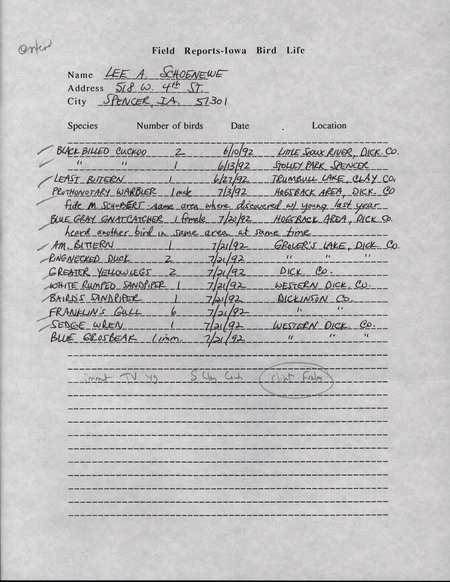 Field Reports-Iowa Bird Life
Name LEE A. SCHOENEWE
Address 518 W. 4th ST.
City SPENCER, IA. 51301
Species Number of birds Date Location
BLACK BILLED CUCKOO 2 6/10/92 LITTLE SIOUX RIVER, DICK. CO.
" " 1 6/13/92 STOLLEY PARK, SPENCER
LEAST BITTERN 1 6/27/92 TRUMBULL LAKE, CLAY CO.
PROTHONOTARY WARBLER 1 male 7/3/92 HOGSBACK AREA, DICK. CO
fide M. SCHUBERT same area where discovered w/ young last year
BLUE GRAY GNATCATCHER 1 female 7/20/92 HOGSBACK AREA, DICK. CO.
heard another bird in same area at same time
AM. BITTERN 1 7/21/92 GROVER'S LAKE, DICK. CO.
RING NECKED DUCK 2 7/21/92 " " "
GREATER YELLOWLEGS 2 7/21/92 DICK. CO.
WHITE RUMPED SANDPIPER 1 7/21/92 WESTERN DICK. CO.
BAIRD'S SANDPIPER 1 7/21/92 DICKINSON CO.
FRANKLIN'S GULL 6 7/21/92 " "
SEDGE WREN 1 7/21/92 WESTERN DICK. CO.
BLUE GROSBEAK 1 imm. 7/21/92 " " "
TV